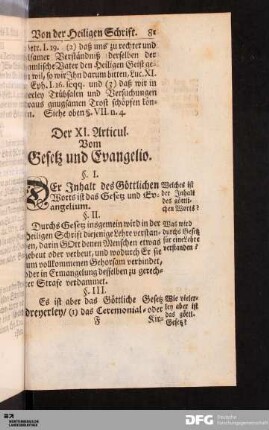 Von der Heiligen Schrift. 81
Petr. I. 19. (2) daß uns zu rechter und
Verständniß derselben der
Vater den Heiligen Geist ge-
ben wil, so wir Ihn darum bitten, Luc. XI.
Eph. I. 16. seqq. und (3) daß wir in
Trübsalen und Versuchungen
daraus gnugsamen Trost schöpfen kön-
nen. Siehe oben §. VII. n. 4.
Der XI. Articul.
Vom
Gesetz und Evangelio.
§. I.
DEr Inhalt des Göttlichen
Worts ist das Gesetz und Ev-
angelium.
Welches ist
der Inhalt
des göttli-
chen Worts?
§. II.
Durchs Gesetz insgemein wird in der
Heiligen Schrift diejenige Lehre verstan-
den, darin GOtt denen Menschen etwas
gebeut oder verbeut, und wodurch Er sie
zum vollkommenen Gehorsam verbindet,
oder in Ermangelung desselben zu gerech-
ter Strafe verdammet.
Was wird
durchs Gesetz
für eine Lehre
verstanden?
§. III.
Es ist aber das Göttliche Gesetz
dreyerley/ (1) das Ceremonial- oder
Wie vieler-
ley aber ist
das göttl.
Gesetz?
F Kir-
DFG Deutsche
Forschungsgemeinschaft